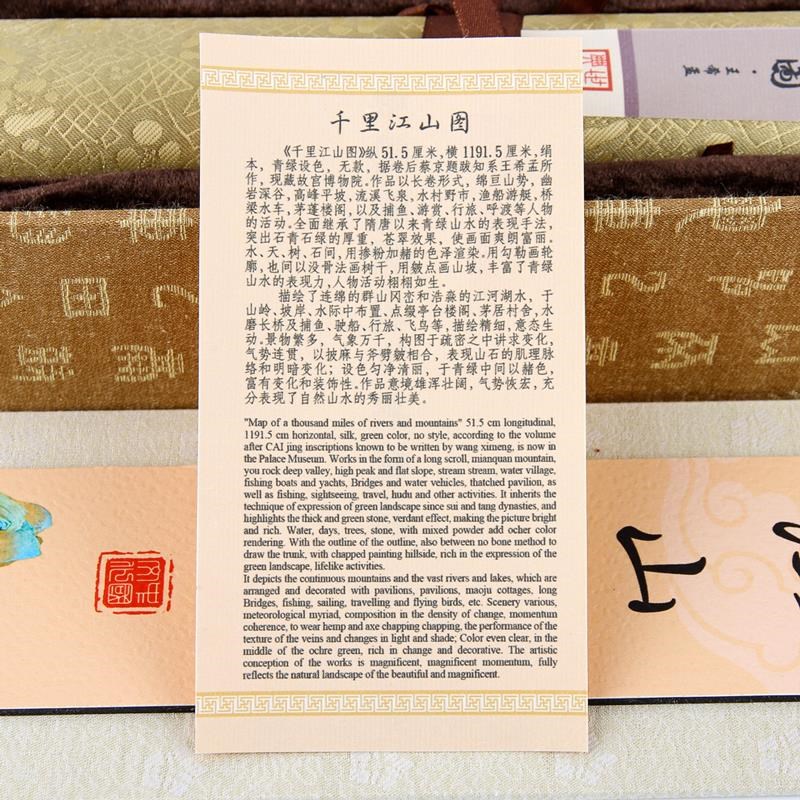 千里江山图
《千里江山图》纵51.5厘米，横1191.5厘米，绢
本，青绿设色，无款，据卷后蔡京题跋知系王希孟所
作，现藏故宫博物院。作品以长卷形式，绵亘山势，幽
岩深谷，高峰平坡，流溪飞泉，水村野市，渔船游艇，桥
梁水车，茅蓬楼阁，以及捕鱼、游赏、行旅、呼渡等人物
的活动。全面继承了隋唐以来青绿山水的表现手法，
突出石青石绿的厚重，苍翠效果，使画面爽朗富丽。
水、天、树、石间，用掺粉加赭的色泽渲染。用勾勒画轮
廓，也间以没骨法画树干，用皴点画山坡，丰富了青绿
山水的表现力，人物活动栩栩如生。
描绘了连绵的群山冈峦和浩淼的江河湖水，于
山岭、坡岸、水际中布置、点缀亭台楼阁、茅居村舍，水
磨长桥及捕鱼、驶船、行旅、飞鸟等，描绘精细，意态生
动。景物繁多，气象万千，构图于疏密之中讲求变化，
气势连贯，以披麻与斧劈皴相合，表现山石的肌理脉
络和明暗变化；设色匀净清丽，于青绿中间以赭色，
富有变化和装饰性。作品意境雄浑壮阔，气势恢宏，充
分表现了自然山水的秀丽壮美。
"Map of a thousand miles of rivers and mountains" 51.5 cm longitudinal,
1191.5 cm horizontal, silk, green color, no style, according to the volume
after CAI jing inscriptions known to be written by wang ximeng, is now in
the Palace Museum. Works in the form of a long scroll, mianquan mountain,
you rock deep valley, high peak and flat slope, stream stream, water village,
fishing boats and yachts, Bridges and water vehicles, thatched pavilion, as
well as fishing, sightseeing, travel, hudu and other activities. It inherits the
technique of expression of green landscape since sui and tang dynasties, and
highlights the thick and green stone, verdant effect, making the picture bright
and rich. Water, days, trees, stone, with mixed powder add ocher color
rendering. With the outline of the outline, also between no bone method to
draw the trunk, with chapped painting hillside, rich in the expression of the
green landscape, lifelike activities.
It depicts the continuous mountains and the vast rivers and lakes, which are
arranged and decorated with pavilions, pavilions, maoju cottages, long
Bridges, fishing, sailing, travelling and flying birds, etc. Scenery various,
meteorological myriad, composition in the density of change, momentum
coherence, to wear hemp and axe chapping chapping, the performance of the
texture of the veins and changes in light and shade; Color even clear, in the
middle of the ochre green, rich in change and decorative. The artistic
conception of the works is magnificent, magnificent momentum, fully
reflects the natural landscape of the beautiful and magnificent.
山